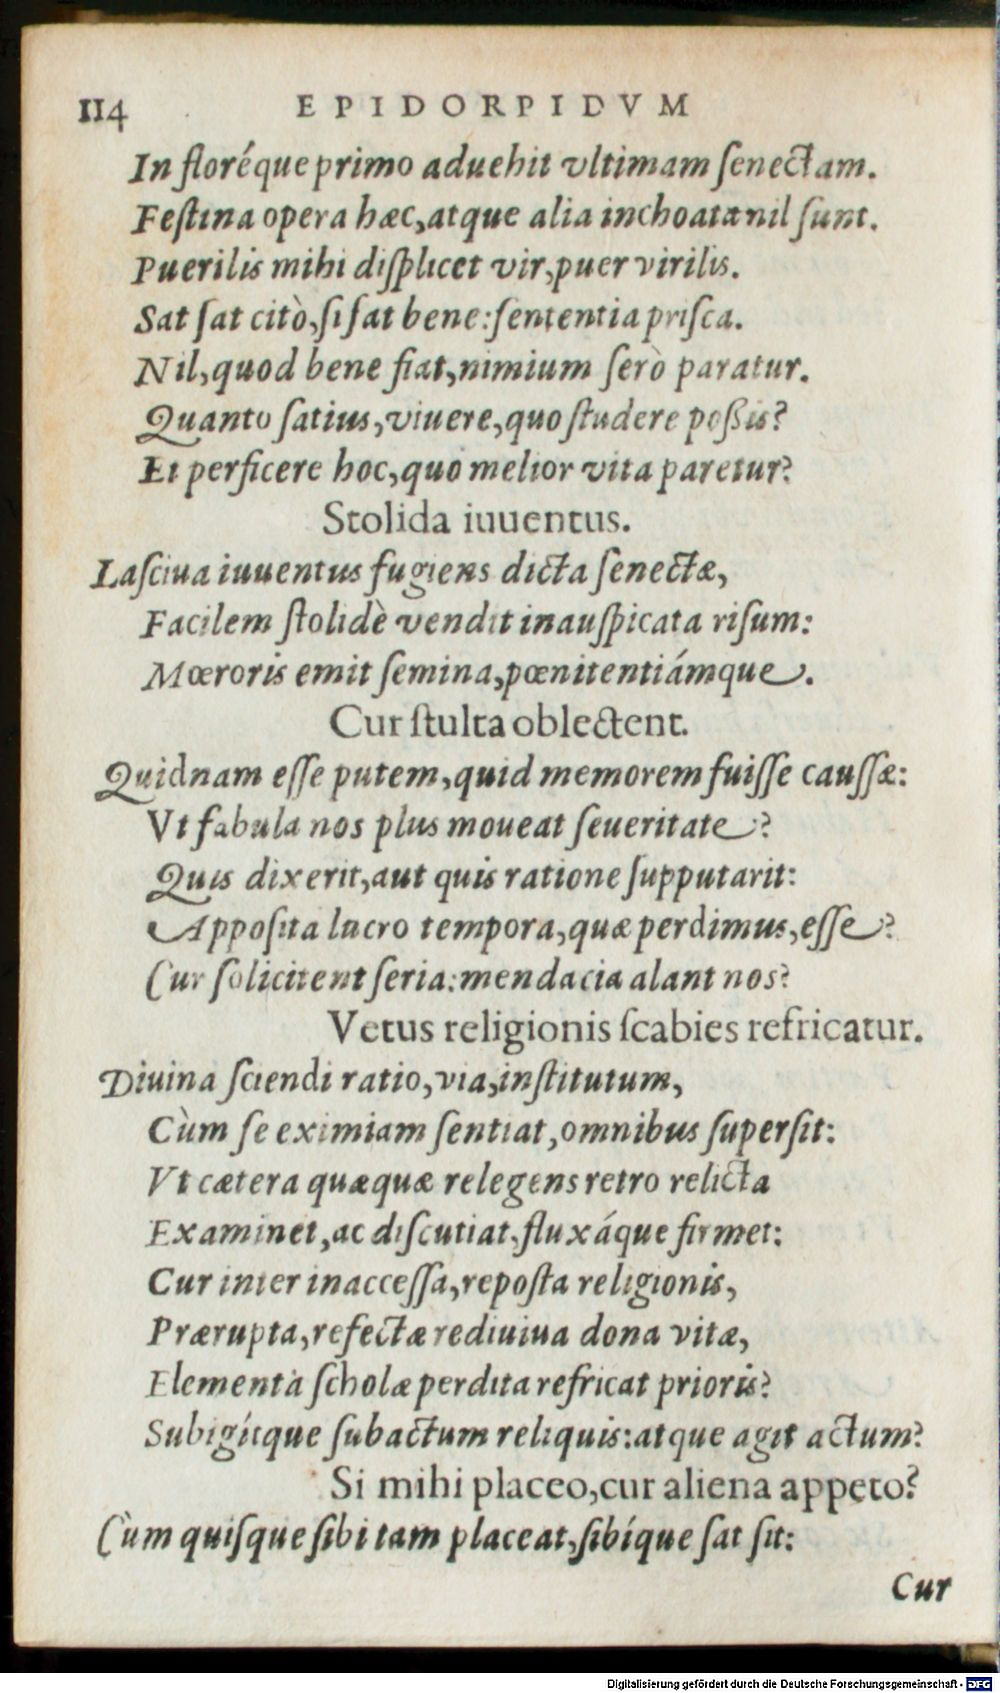 114 EPIDORPIDVM
In floréque primo aduehit vltimam ſenectam.
Feſtina opera hæc, atque alia inchoata nil ſunt.
Puerilis mihi diſplicet vir, puer virilis.
Sat ſat citò, ſi ſat bene: ſententia priſca.
Nil, quod bene fiat, nimium ſerò paratur.
Quanto ſatius, viuere, quo ſtudere poßis?
Et perficere hoc, quo melior vita paretur?
Stolida iuuentus.
Laſciua iuuentus fugiens dicta ſenectæ,
Facilem ſtolidè vendit inauſpicata riſum:
Mœroris emit ſemina, pœnitentiámque.
Cur ſtulta oblectent.
Quidnam eſſe putem, quid memorem fuiſſe cauſſæ:
Vt fabula nos plus moueat ſeueritate?
Quis dixerit, aut quis ratione ſupputarit:
Appoſita lucro tempora, quæ perdimus, eſſe?
Cur ſolicitent ſeria: mendacia alant nos?
Vetus religionis ſcabies refricatur.
Diuina ſciendi ratio, via, inſtitutum,
Cùm ſe eximiam ſentiat, omnibus ſuperſit:
Vt cætera quæquæ relegens retro relicta
Examinet, ac diſcutiat, fluxáque firmet:
Cur inter inacceſſa, repoſta religionis,
Prærupta, refectæ rediuiua dona vitæ,
Elementa ſcholæ perdita refricat prioris?
Subigítque ſubactum reliquis: atque agit actum?
Si mihi placeo, cur aliena appeto?
Cùm quiſque ſibi tam placeat, ſibíque ſat ſit:
Cur
Digitalisierung gefördert durch die Deutsche Forschungsgemeinschaft - DFG